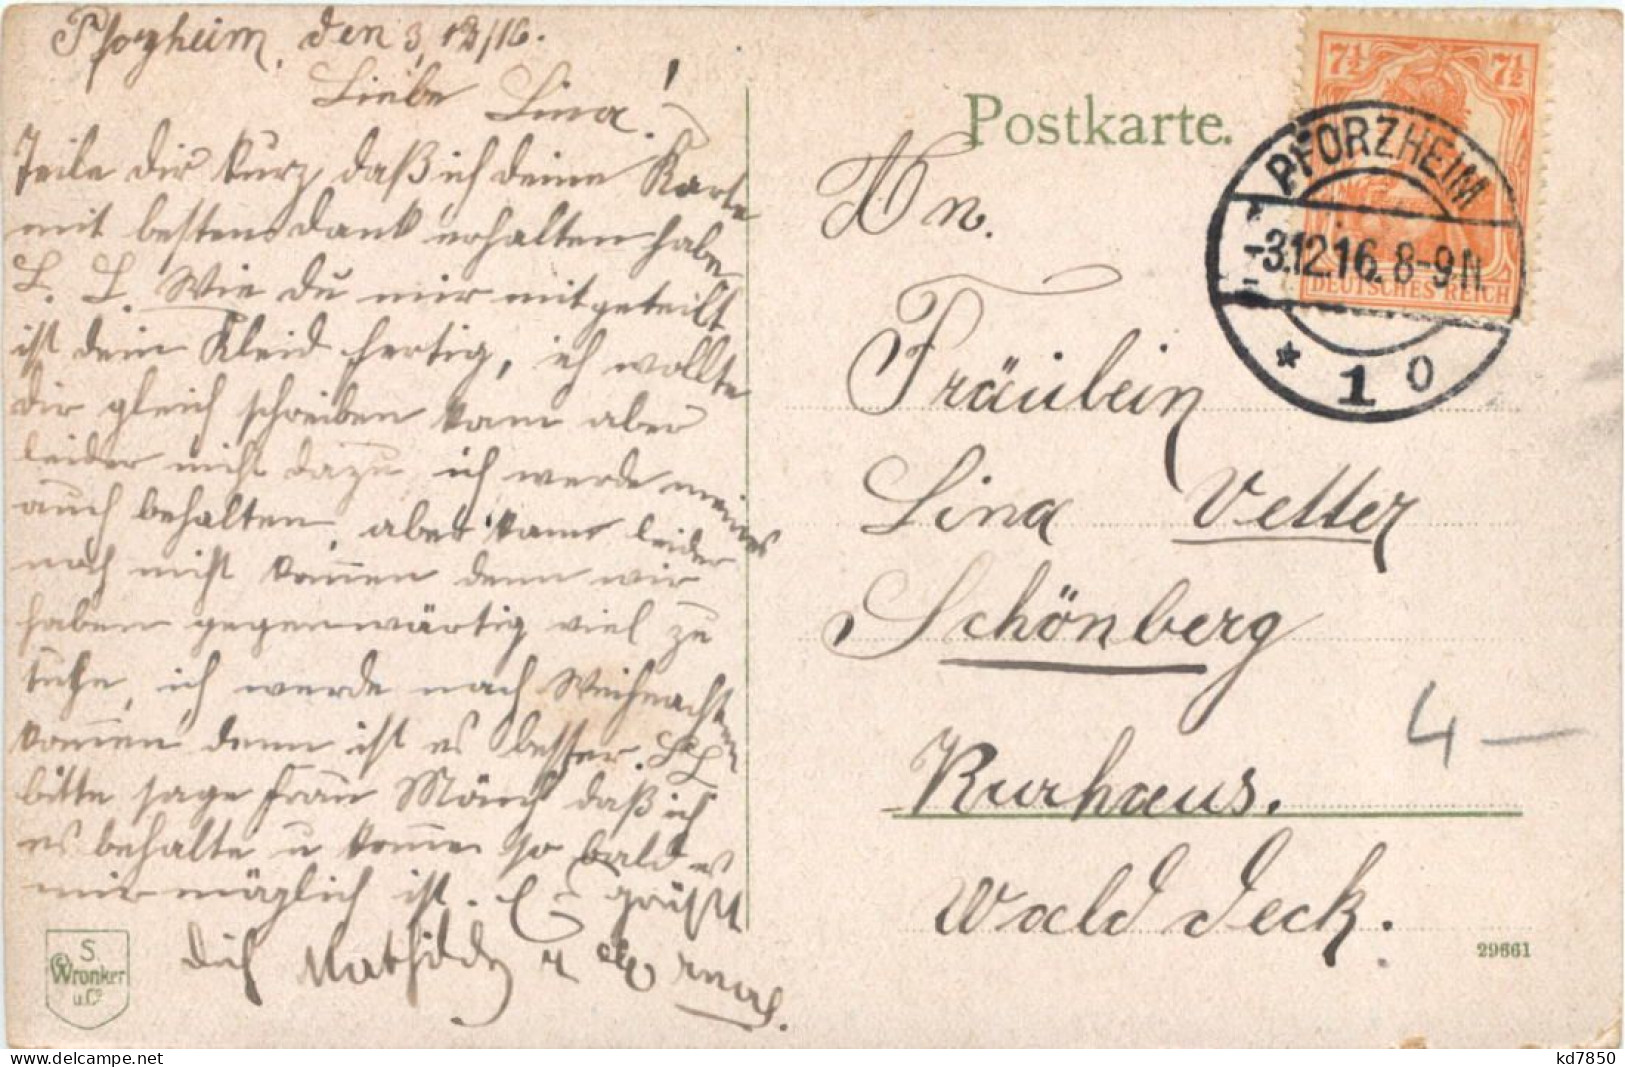 Pforzheim, den 3,12/16.
Liebe Lina!
Teile dir kurz, daß ich deine Karte
mit bestens dank erhalten habe
L. L. Wie du mir mitgeteilt
ist dein Kleid fertig, ich wollte
dir gleich schreiben kam aber
leider nicht dazu, ich werde meines
auch behalten, aber kann leider
noch nicht kommen denn wir
haben gegenwärtig viel zu
tuhe, ich werde nach Weihnachten
kommen denn ist es besser. L. L.
bitte sage Frau Mönch daß ich
es behalte u komme so bald es
mir möglich ist. Es grüßt
dich Mathilde u
S
Wronker
u. Co
Postkarte.
An.
Fräulein
Lina Vetter
Schönberg
Kurhaus.
Wald Jeck.
4 —
29661
7½ 7½
DEUTSCHES REICH
PFORZHEIM
-3.12.16. 8-9 N.
* 1 o
delcampe.net
kd7850